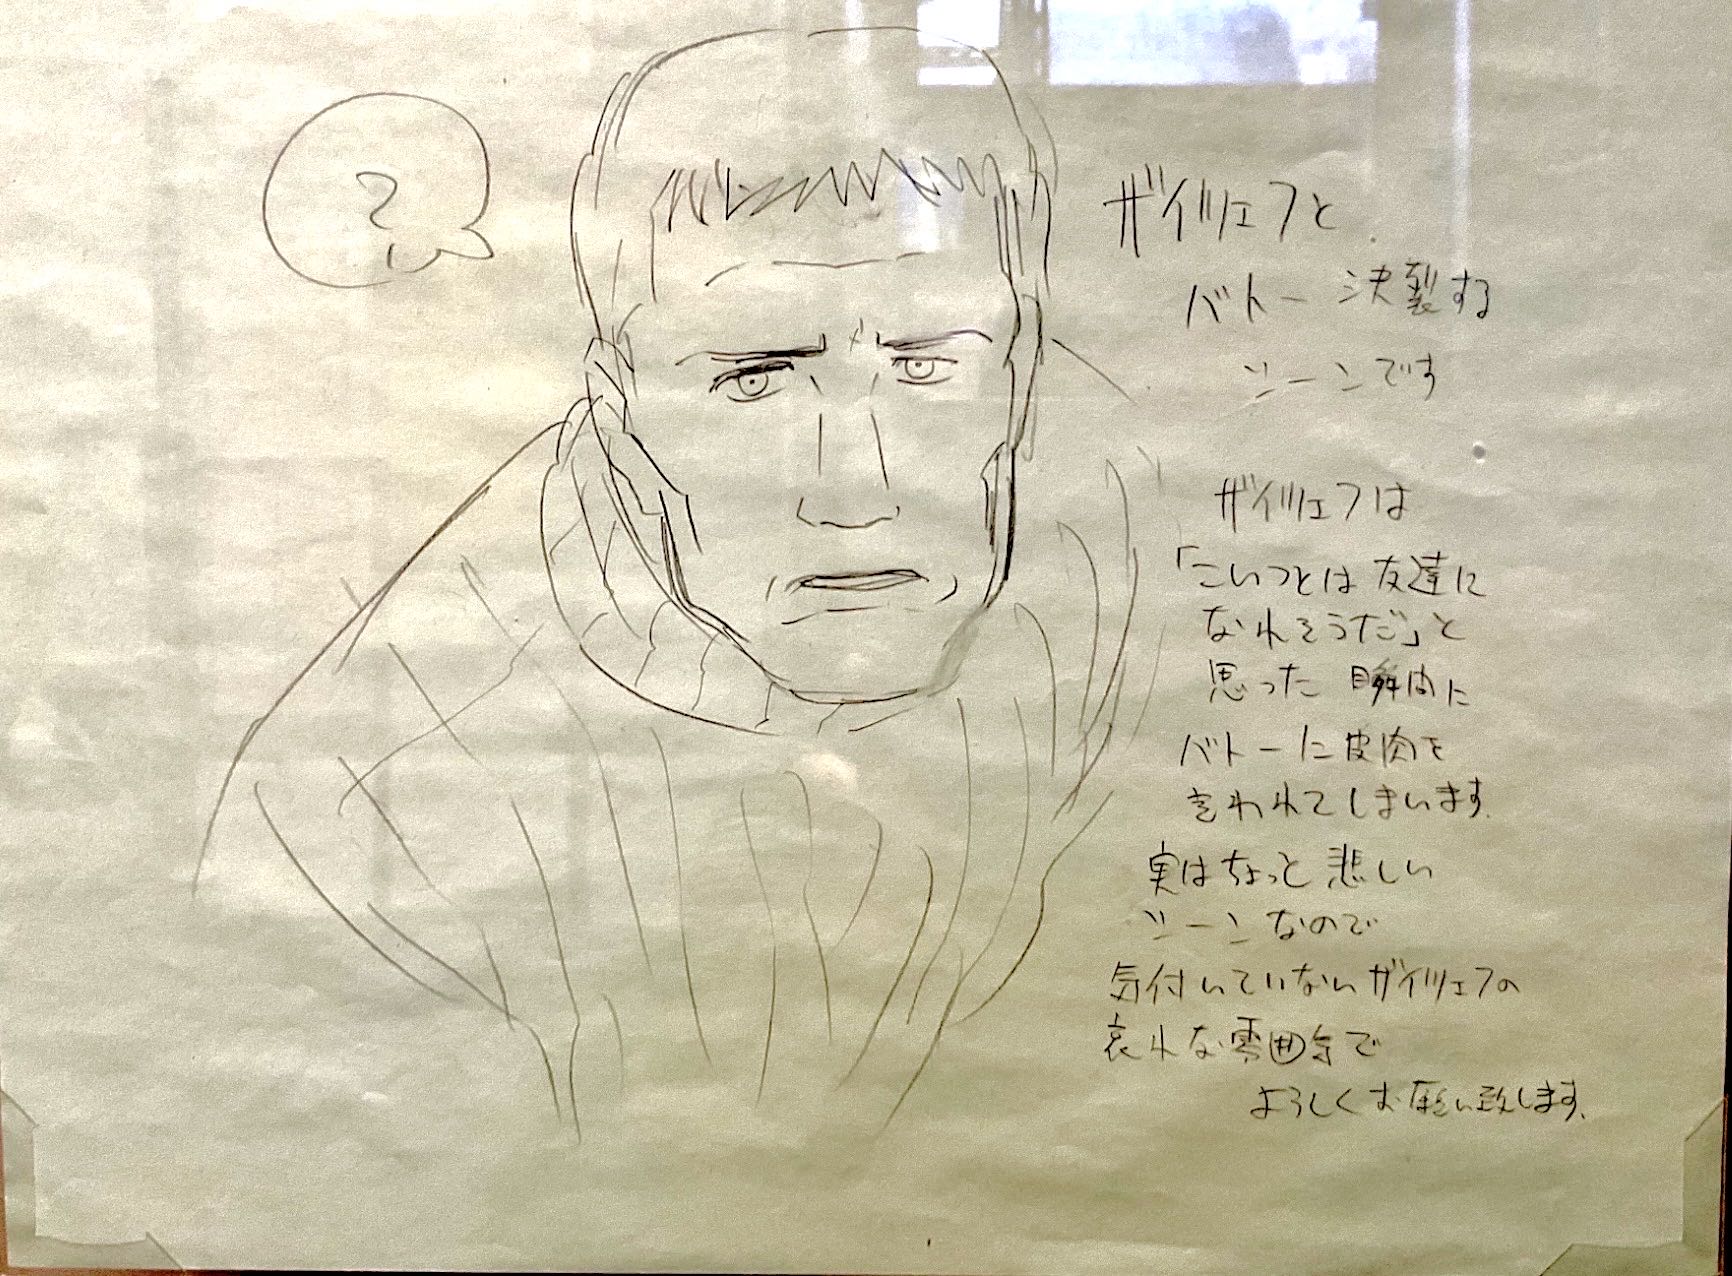 ?
ザイツェフと
バトー決裂する
シーンです
ザイツェフは
「こいつとは友達に
なれそうだ」と
思った瞬間に
バトーに皮肉を
言われてしまいます。
実はちょっと悲しい
シーンなので
気付いていないザイツェフの
哀れな雰囲気で
よろしくお願い致します。